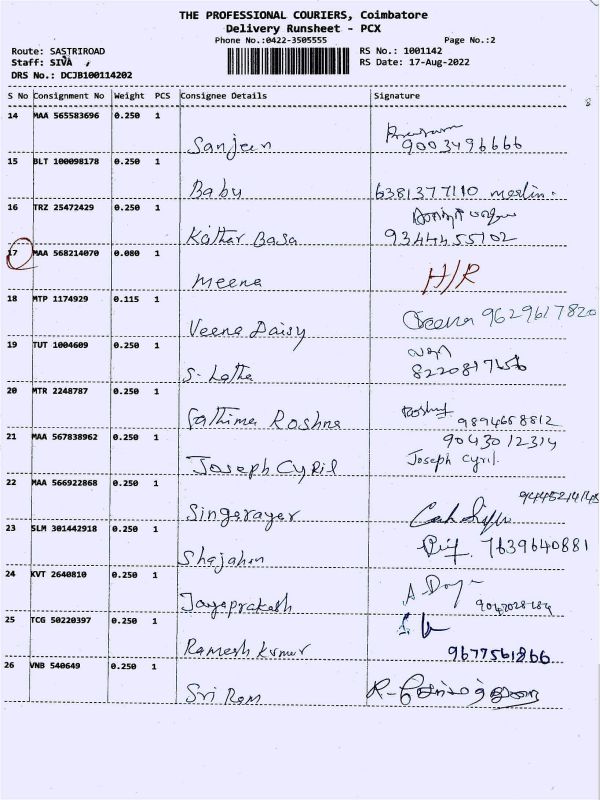 THE PROFESSIONAL COURIERS, Coimbatore
Delivery Runsheet - PCX
Phone No.:0422-3505555 Page No.:2
Route: SASTRIROAD RS No.: 1001142
Staff: SIVA RS Date: 17-Aug-2022
DRS No.: DCJB100114202
S No Consignment No Weight PCS Consignee Details Signature
14 MAA 565583696 0.250 1
Sanjeen 9003496666
15 BLT 100098178 0.250 1
Baby 6381377110 merlin.
16 TRZ 25472429 0.250 1
Kathar Basa 9344455102
17 MAA 568214070 0.080 1
Meena H/R
18 MTP 1174929 0.115 1
Veena Daisy 9629617820
19 TUT 1004609 0.250 1
S. Latha
20 MTR 2248787 0.250 1
Fathima Roshna 9894668812
21 MAA 567838962 0.250 1 9043012314
Joseph Cyril Joseph Cyril.
22 MAA 566922868 0.250 1
Singerayer
23 SLM 301442918 0.250 1
Shajahan 7639640881
24 KVT 2640810 0.250 1
Jayaprakash
25 TCG 50220397 0.250 1
Ramesh Kumar 9677561866
26 VNB 540649 0.250 1
Sri Ram